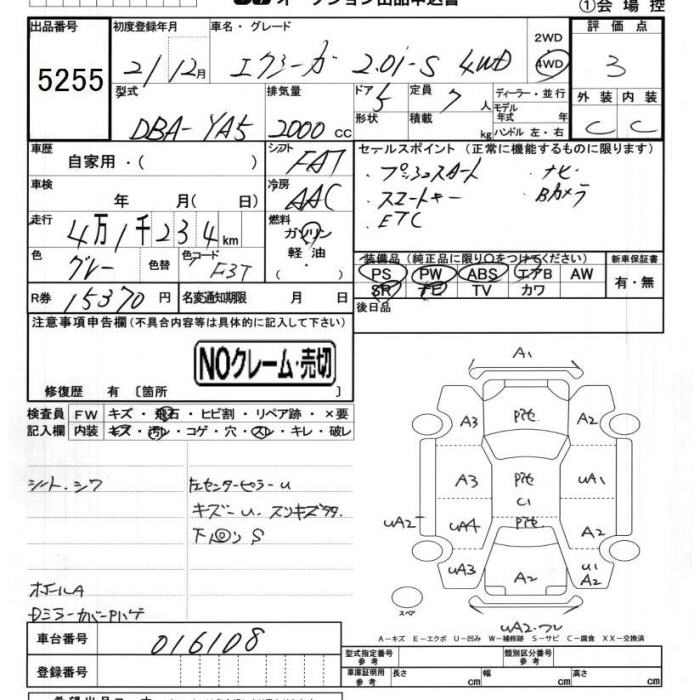 オークション出品申込書
①会場控
出品番号 初度登録年月 車名・グレード 2WD 評価点
5255 21/12月 エクシーガ 2.0i-S 4WD 4WD 3
型式 排気量 ドア 5 定員 7人 ディーラー・並行 外装 内装
DBA-YA5 2000cc 形状 積載 kg モデル年式 年 ハンドル 左・右 C C
車歴 自家用・( ) シフト FAT セールスポイント (正常に機能するものに限ります)
車検 年 月( 日) 冷房 AAC ・プッシュスタート ・ナビ
・スマートキー ・Bカメラ
・ETC
走行 4万1千234km 燃料 ガソリン・軽油
色 グレー 色替 色コード F3T 装備品 (純正品に限り○をつけてください) 新車保証書
PS PW ABS エアB AW 有・無
SR ナビ TV カワ
R券 15370円 名変通知期限 月 日 後日品
注意事項申告欄(不具合内容等は具体的に記入して下さい)
NOクレーム・売切
修復歴 有 〔箇所 〕
検査員 FW キズ・飛石・ヒビ割・リペア跡・×要
記入欄 内装 キズ・汚レ・コゲ・穴・スレ・キレ・破レ
シート・シワ 左センターピラーU
キズーU. スリキズ多々.
下回り S
ホイールA
Dミラーカバー Pハゲ
A1
A3 Pアセ A2
A3 Pアセ UA1
C1
UA2 UA4 Pアセ A2
UA3 A2 U1 A2
スペア
UA2.ワレ
A-キズ E-エクボ U-凹み W-補修跡 S-サビ C-腐食 XX-交換済
車台番号 016108
登録番号
型式指定番号 参考 類別区分番号 参考
車庫証明用 参考 長さ cm 幅 cm 高さ cm